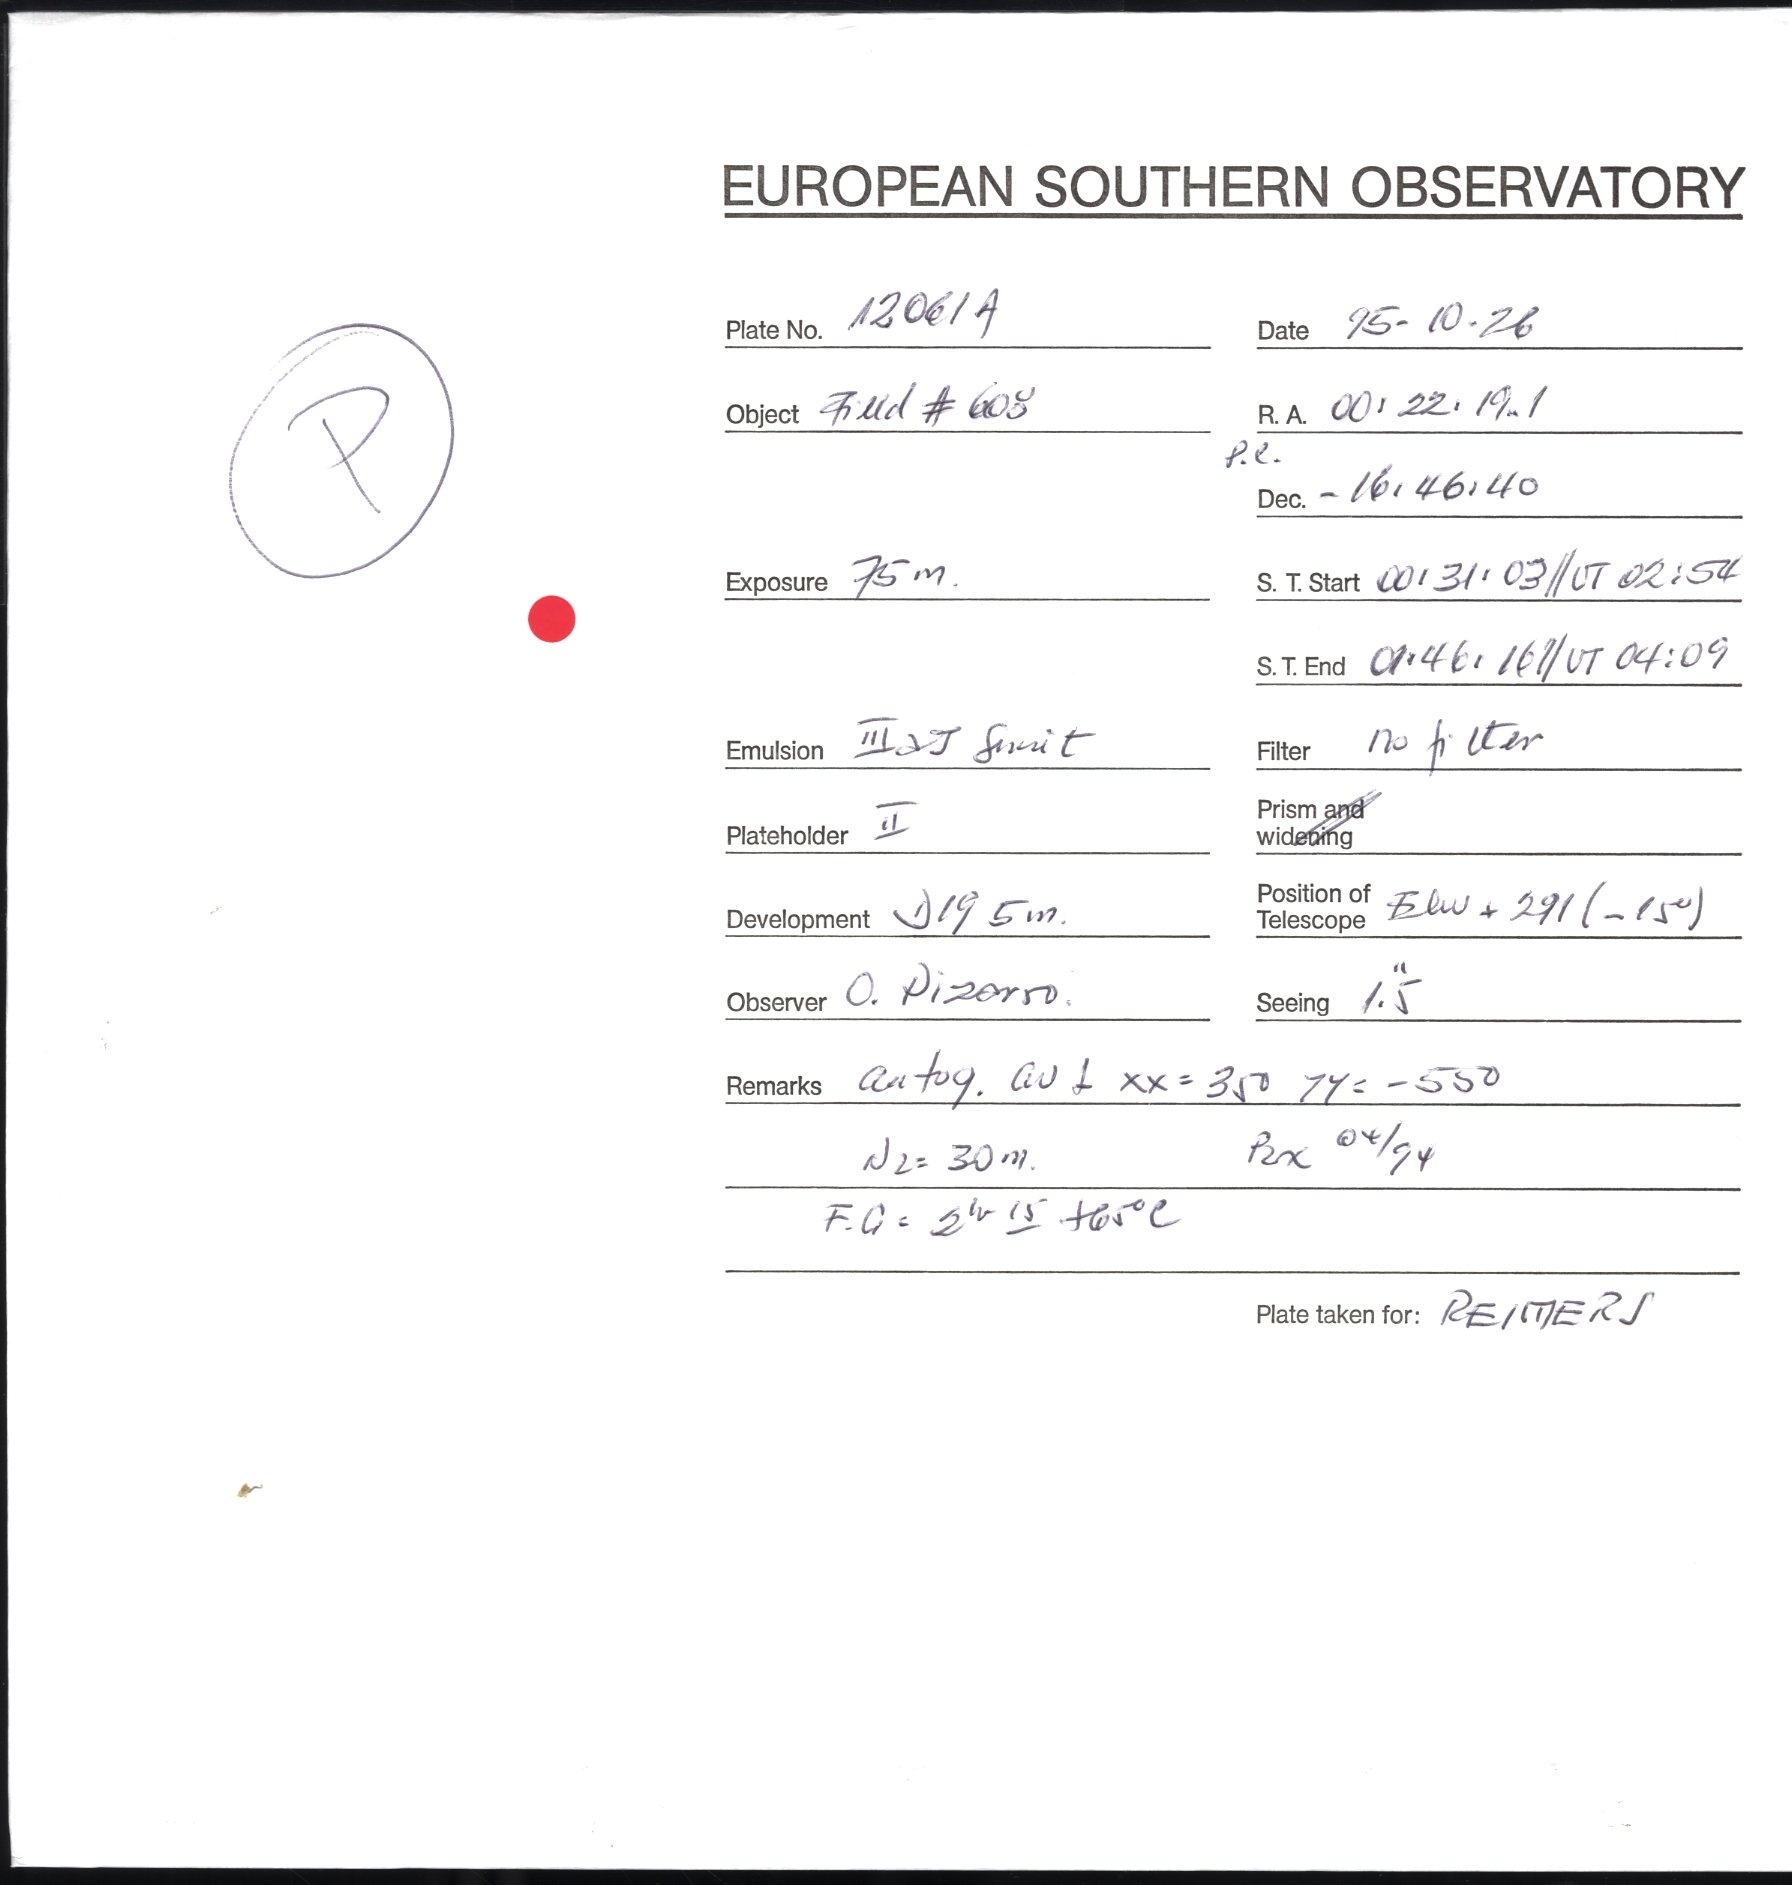 EUROPEAN SOUTHERN OBSERVATORY
Plate No. 12061A Date 95-10-26
Object Field # 608 R. A. 00:22:19.1
P.R.
Dec. -16:46:40
Exposure 75m. S. T. Start 00:31:03//UT 02:54
S. T. End 01:46:16//UT 04:09
P
Emulsion IIIaJ Filter no filter
Plateholder II Prism and
widening
Development D19 5m. Position of
Telescope + 291 (-150)
Observer O. Pizarro. Seeing 1.5"
Remarks autog. xx = 350 yy = -550
N2 = 30m. 04/94
F.G = 2hr 15 +65°C
Plate taken for: REIMERS